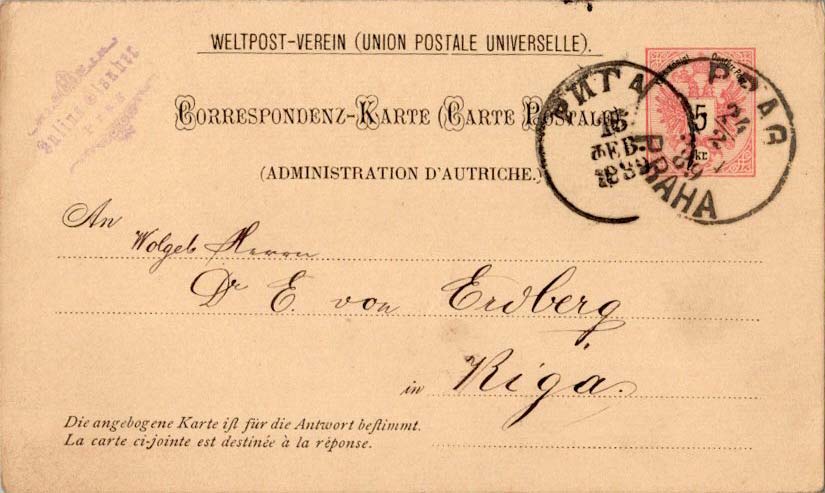 WELTPOST-VEREIN (UNION POSTALE UNIVERSELLE).
CORRESPONDENZ-KARTE (CARTE POSTALE)
(ADMINISTRATION D'AUTRICHE.)
5
kr.
РИГА
15
ФЕВ.
1889
PRAG
24/2
89
PRAHA
PRAG
An
Wolgeb Herrn
Dr E. von Erdberg
in Riga.
Die angebogene Karte iſt für die Antwort beſtimmt.
La carte ci-jointe est destinée à la réponse.